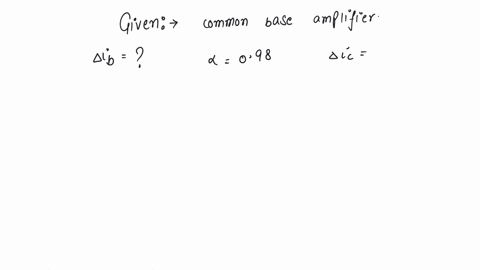 Given:→ common base amplifier.
Δib = ? α = 0.98 Δic =